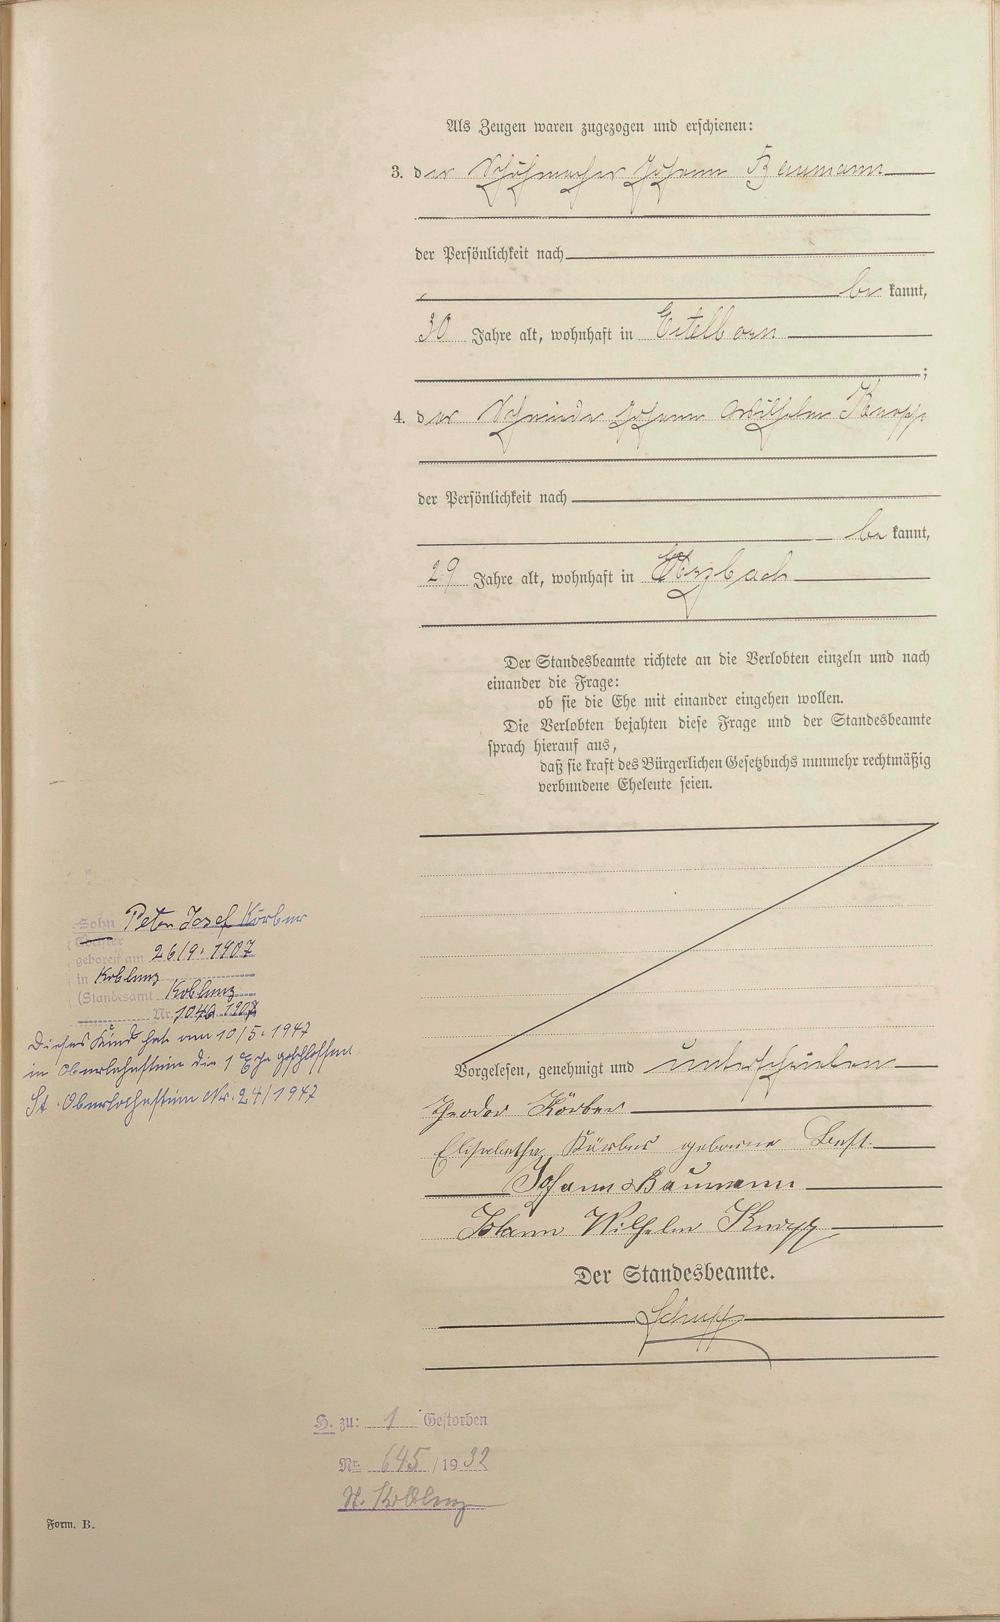 Als Zeugen waren zugezogen und erschienen:
3. der Schuhmacher Johann Baumann
der Persönlichkeit nach
be kannt,
30 Jahre alt, wohnhaft in Eitelborn
;
4. der Schreinder Johann Wilhelm Knopp
der Persönlichkeit nach
be kannt,
29 Jahre alt, wohnhaft in Arzbach
Der Standesbeamte richtete an die Verlobten einzeln und nach
einander die Frage:
ob sie die Ehe mit einander eingehen wollen.
Die Verlobten bejahten diese Frage und der Standesbeamte
sprach hierauf aus,
daß sie kraft des Bürgerlichen Gesetzbuchs nunmehr rechtmäßig
verbundene Eheleute seien.
Vorgelesen, genehmigt und unterschrieben
Theodor Körber
Elisabetha Körber geborene Best.
Johann Baumann
Johann Wilhelm Knopp
Der Standesbeamte.
Schupp
Sohn Peter Josef Körber
Tochter
geboren am 26/9. 1907
in Koblenz
(Standesamt Koblenz
Nr. 1046 1907
Dieses Kind hat am 10/5. 1947
in Oberlahnstein die 1 Ehe geschlossen
St. Oberlahnstein Nr. 24/1947
H. zu: 1 Gestorben
Nr. 645 /1932
St. Koblenz
Form. B.